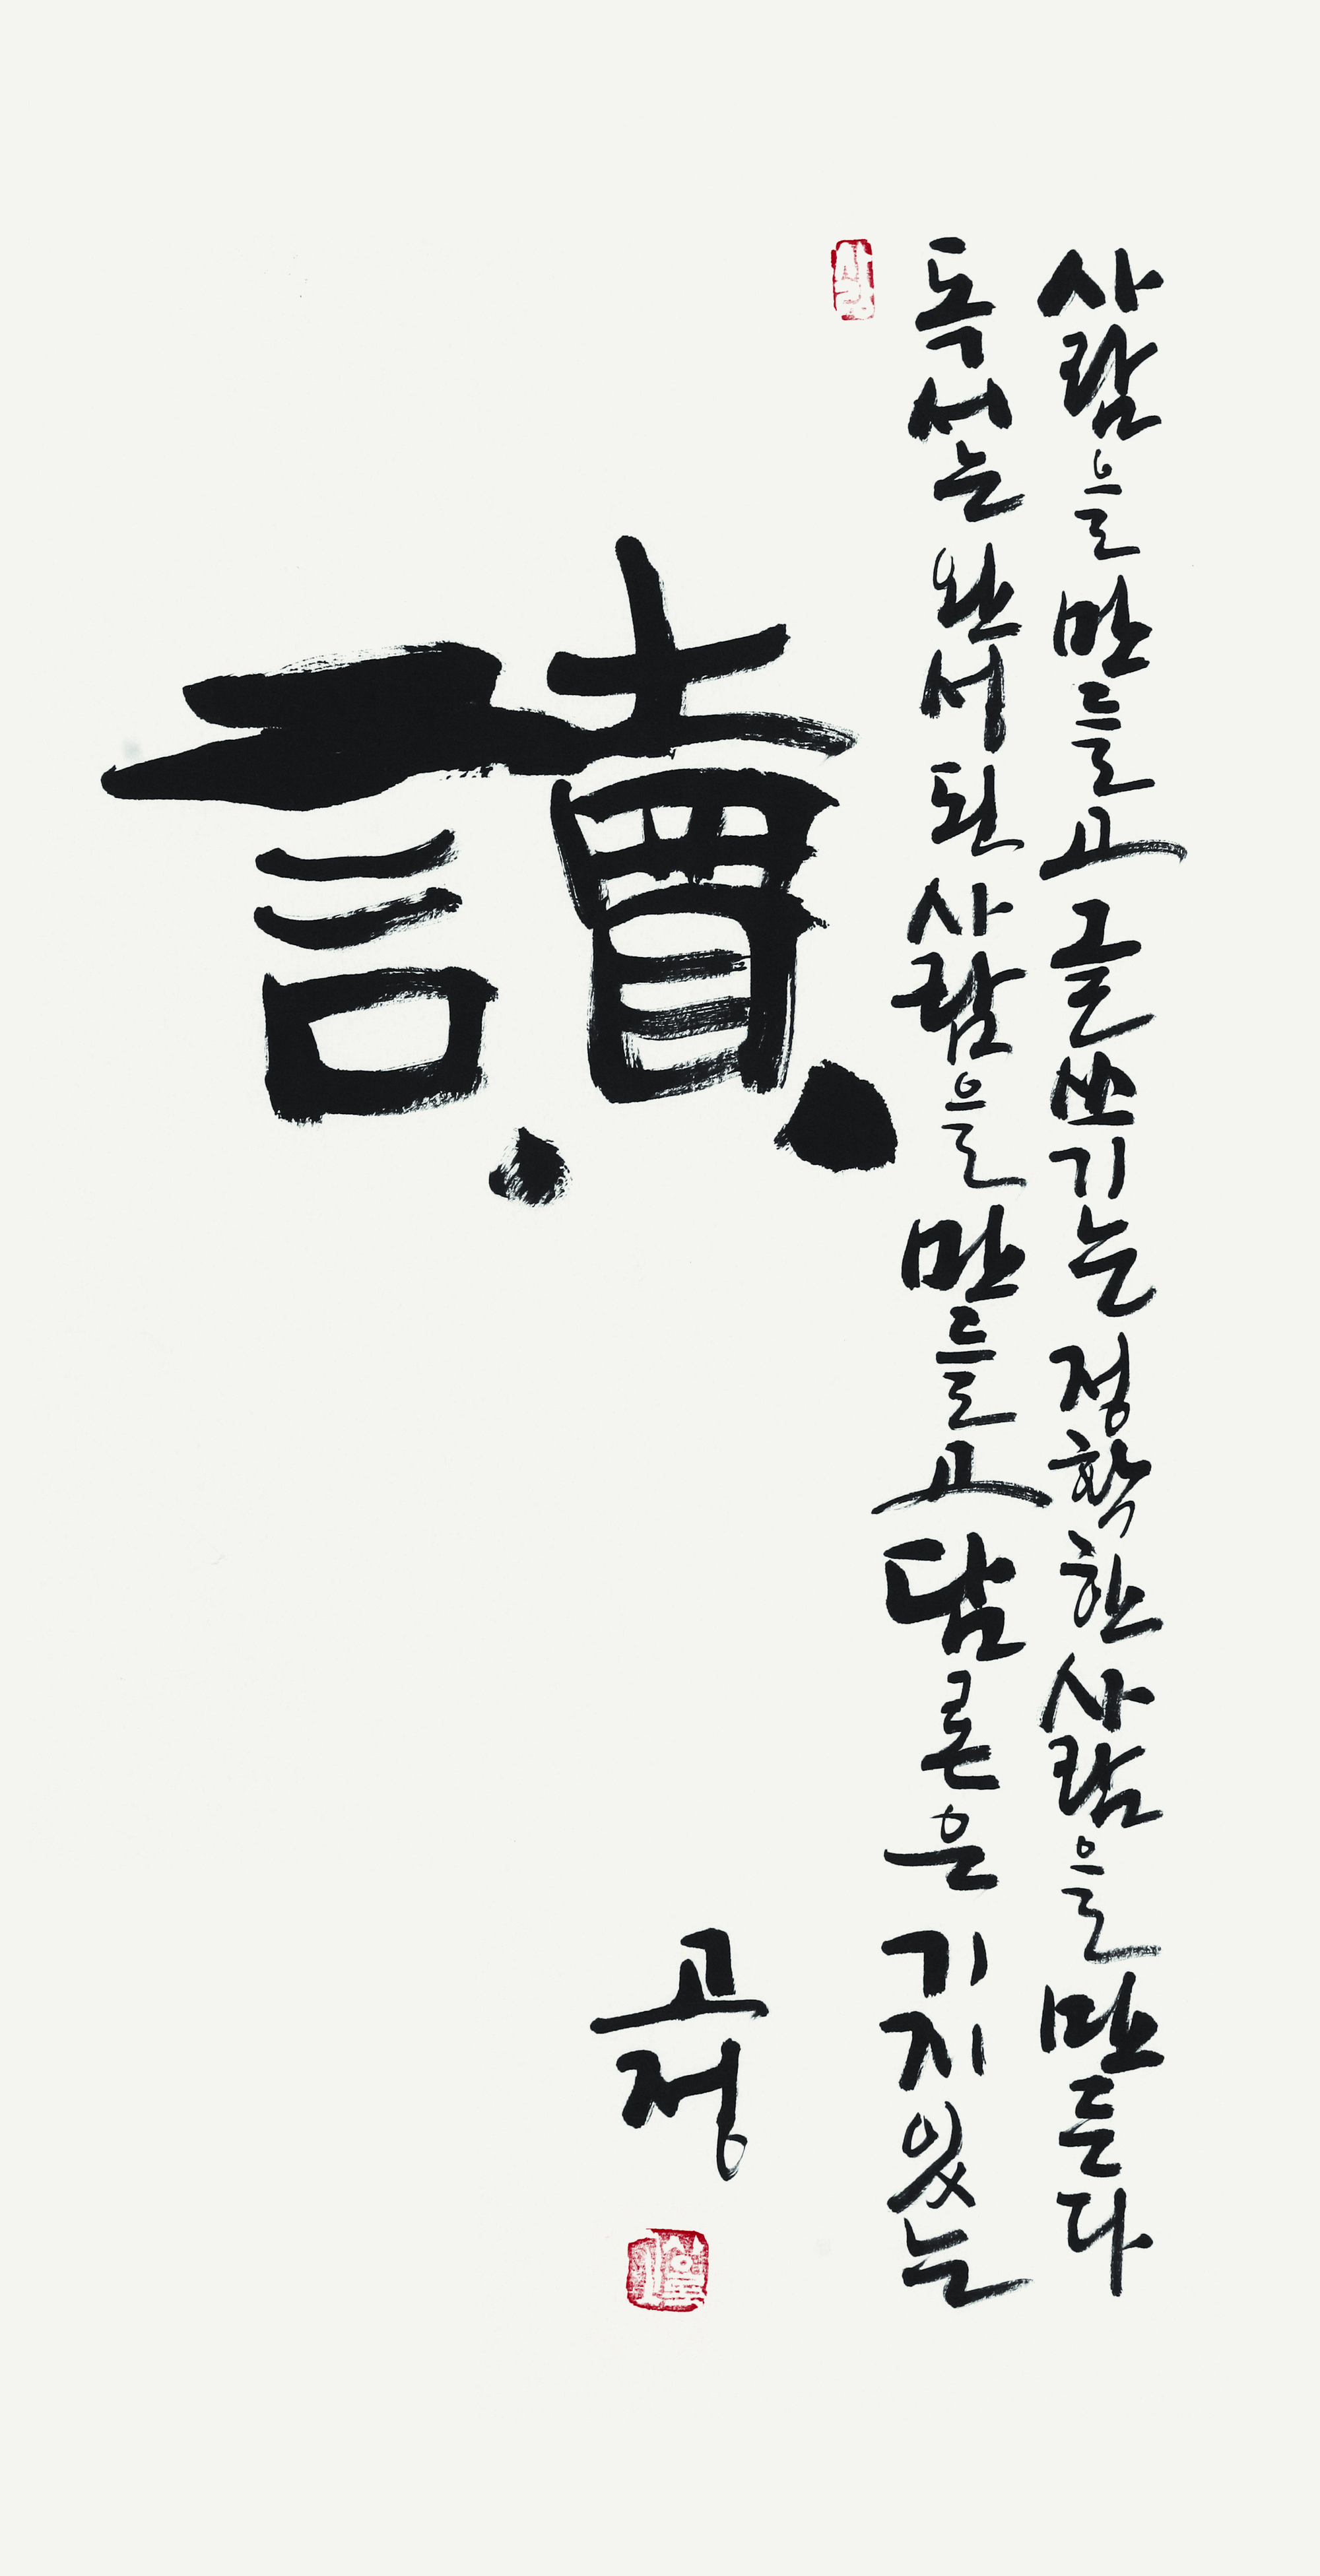 讀
독서는 완서된 사람을 만들고 담론은 기지있는
사람을 만들고 글쓰기는 정확한 사람을 만든다
고정
사랑